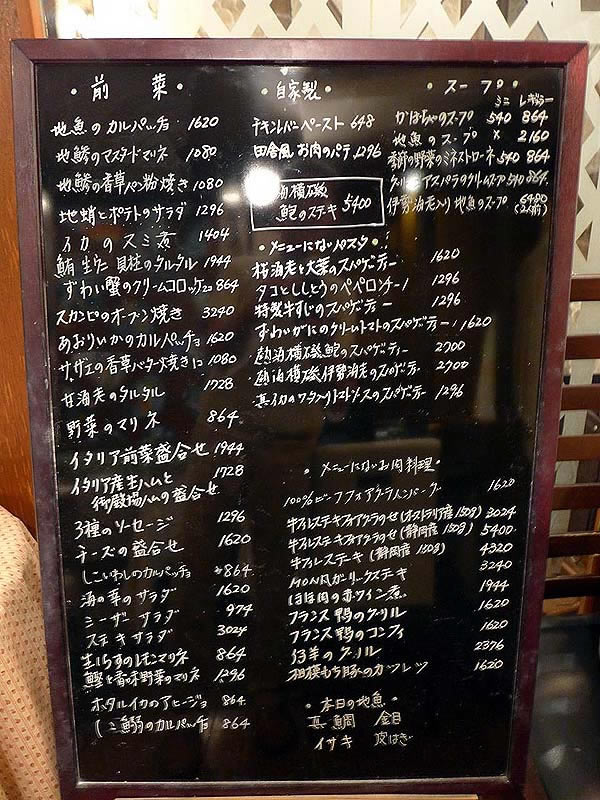 ・前菜・
地魚のカルパッチョ 1620
地鯵のマスタードマリネ 1080
地鯵の香草パン粉焼き 1080
地蛸とポテトのサラダ 1296
イカのスミ煮 1404
鮪 生ウニ 貝柱のタルタル 1944
ずわい蟹のクリームコロッケ 864
スカンピのオーブン焼き 3240
あおりいかのカルパッチョ 1620
サザエの香草バター焼き 1080
甘海老のタルタル 1728
野菜のマリネ 864
イタリア前菜盛合せ 1944
イタリア産生ハムと
御殿場ハムの盛合せ 1728
3種のソーセージ 1296
チーズの盛合せ 1620
しこいわしのカルパッチョ 864
海の幸のサラダ 1620
シーザーサラダ 974
ステキサラダ 3024
生しらすのレモンマリネ 864
鰹と香味野菜のマリネ 1296
ホタルイカのアヒージョ 864
のカルパッチョ 864
・自家製・
チキンレバーペースト 648
田舎風 お肉のパテ 1296
熱海横磯
鮑のステキ 5400
・メニューにないパスタ・
桜海老と大葉のスパゲティー 1620
タコとししとうのペペロンチーノ 1296
特製牛すじのスパゲティー 1296
ずわいがにのクリームトマトのスパゲティー 1620
熱海横磯鮑のスパゲティー 2700
熱海横磯伊勢海老のスパゲティー 2700
真イカのワタ入りトマトソースのスパゲティー 1296
・メニューにないお肉料理・
100%ビーフフォアグラ入ハンバーグ 1620
牛フィレステキフォアグラのせ(オーストラリア産150g) 3024
牛フィレステキフォアグラのせ(静岡産150g) 5400
牛フィレステーキ(静岡産150g) 4320
MON風ガーリックステーキ 3240
ほほ肉の赤ワイン煮 1944
フランス鴨のグリル 1620
フランス鴨のコンフィ 1620
仔羊のグリル 2376
相模もち豚のカツレツ 1620
・本日の地魚・
真鯛 金目
イサキ 皮はぎ
・スープ・
ミニ レギュラー
かぼちゃのスープ 540 864
地魚のスープ × 2160
季節の野菜のミネストローネ 540 864
グリーンアスパラのクリームスープ 540 864
伊勢海老入り地魚のスープ 6480
(2人前)